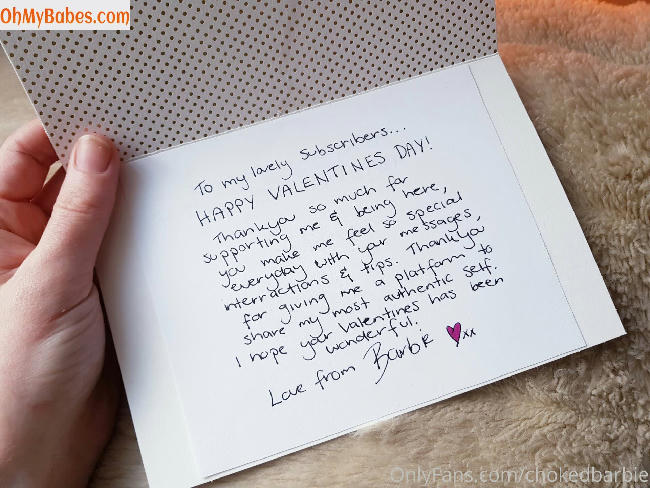 OhMyBabes.com
To my lovely subscribers...
HAPPY VALENTINES DAY!
Thankyou so much for
supporting me & being here,
you make me feel so special
everyday with your messages,
interractions & tips. Thankyou
for giving me a platform to
share my most authentic self.
I hope your Valentines has been
wonderful.
Love from Barbie xx
OnlyFans.com/chokedbarbie